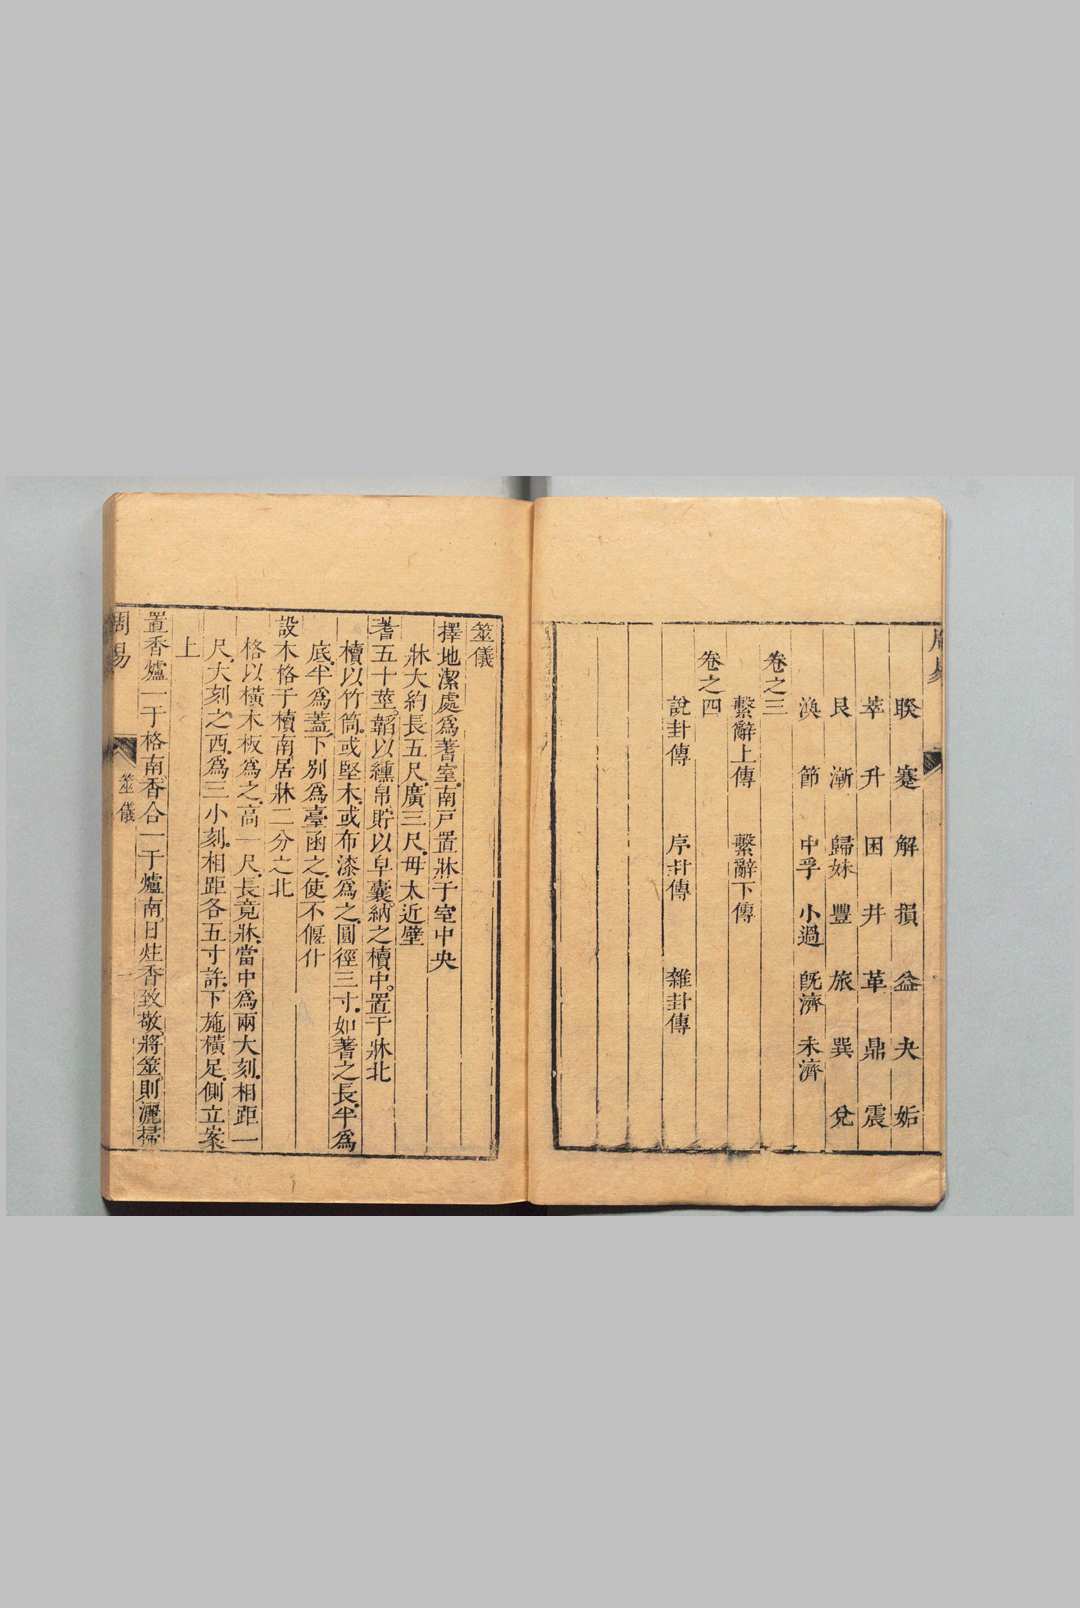 周易
睽 蹇 解 損 益 夬 姤
萃 升 困 井 革 鼎 震
艮 漸 歸妹 豐 旅 巽 兌
渙 節 中孚 小過 旣濟 未濟
卷之三
繫辭上傳 繫辭下傳
卷之四
說卦傳 序卦傳 雜卦傳
筮儀
擇地潔處爲蓍室南戸置牀于室中央
牀大約長五尺廣三尺毋太近壁
蓍五十莖韜以纁帛貯以皁囊納之櫝中置于牀北
櫝以竹筒或堅木或布漆爲之圓徑三寸如蓍之長半爲
底半爲蓋下別爲臺函之使不偃仆
設木格于櫝南居牀二分之北
格以橫木板爲之高一尺長竟牀當中爲兩大刻相距一
尺大刻之西爲三小刻相距各五寸許下施橫足側立案
上
置香爐一于格南香合一于爐南日炷香致敬將筮則灑掃
周易
筮儀
一